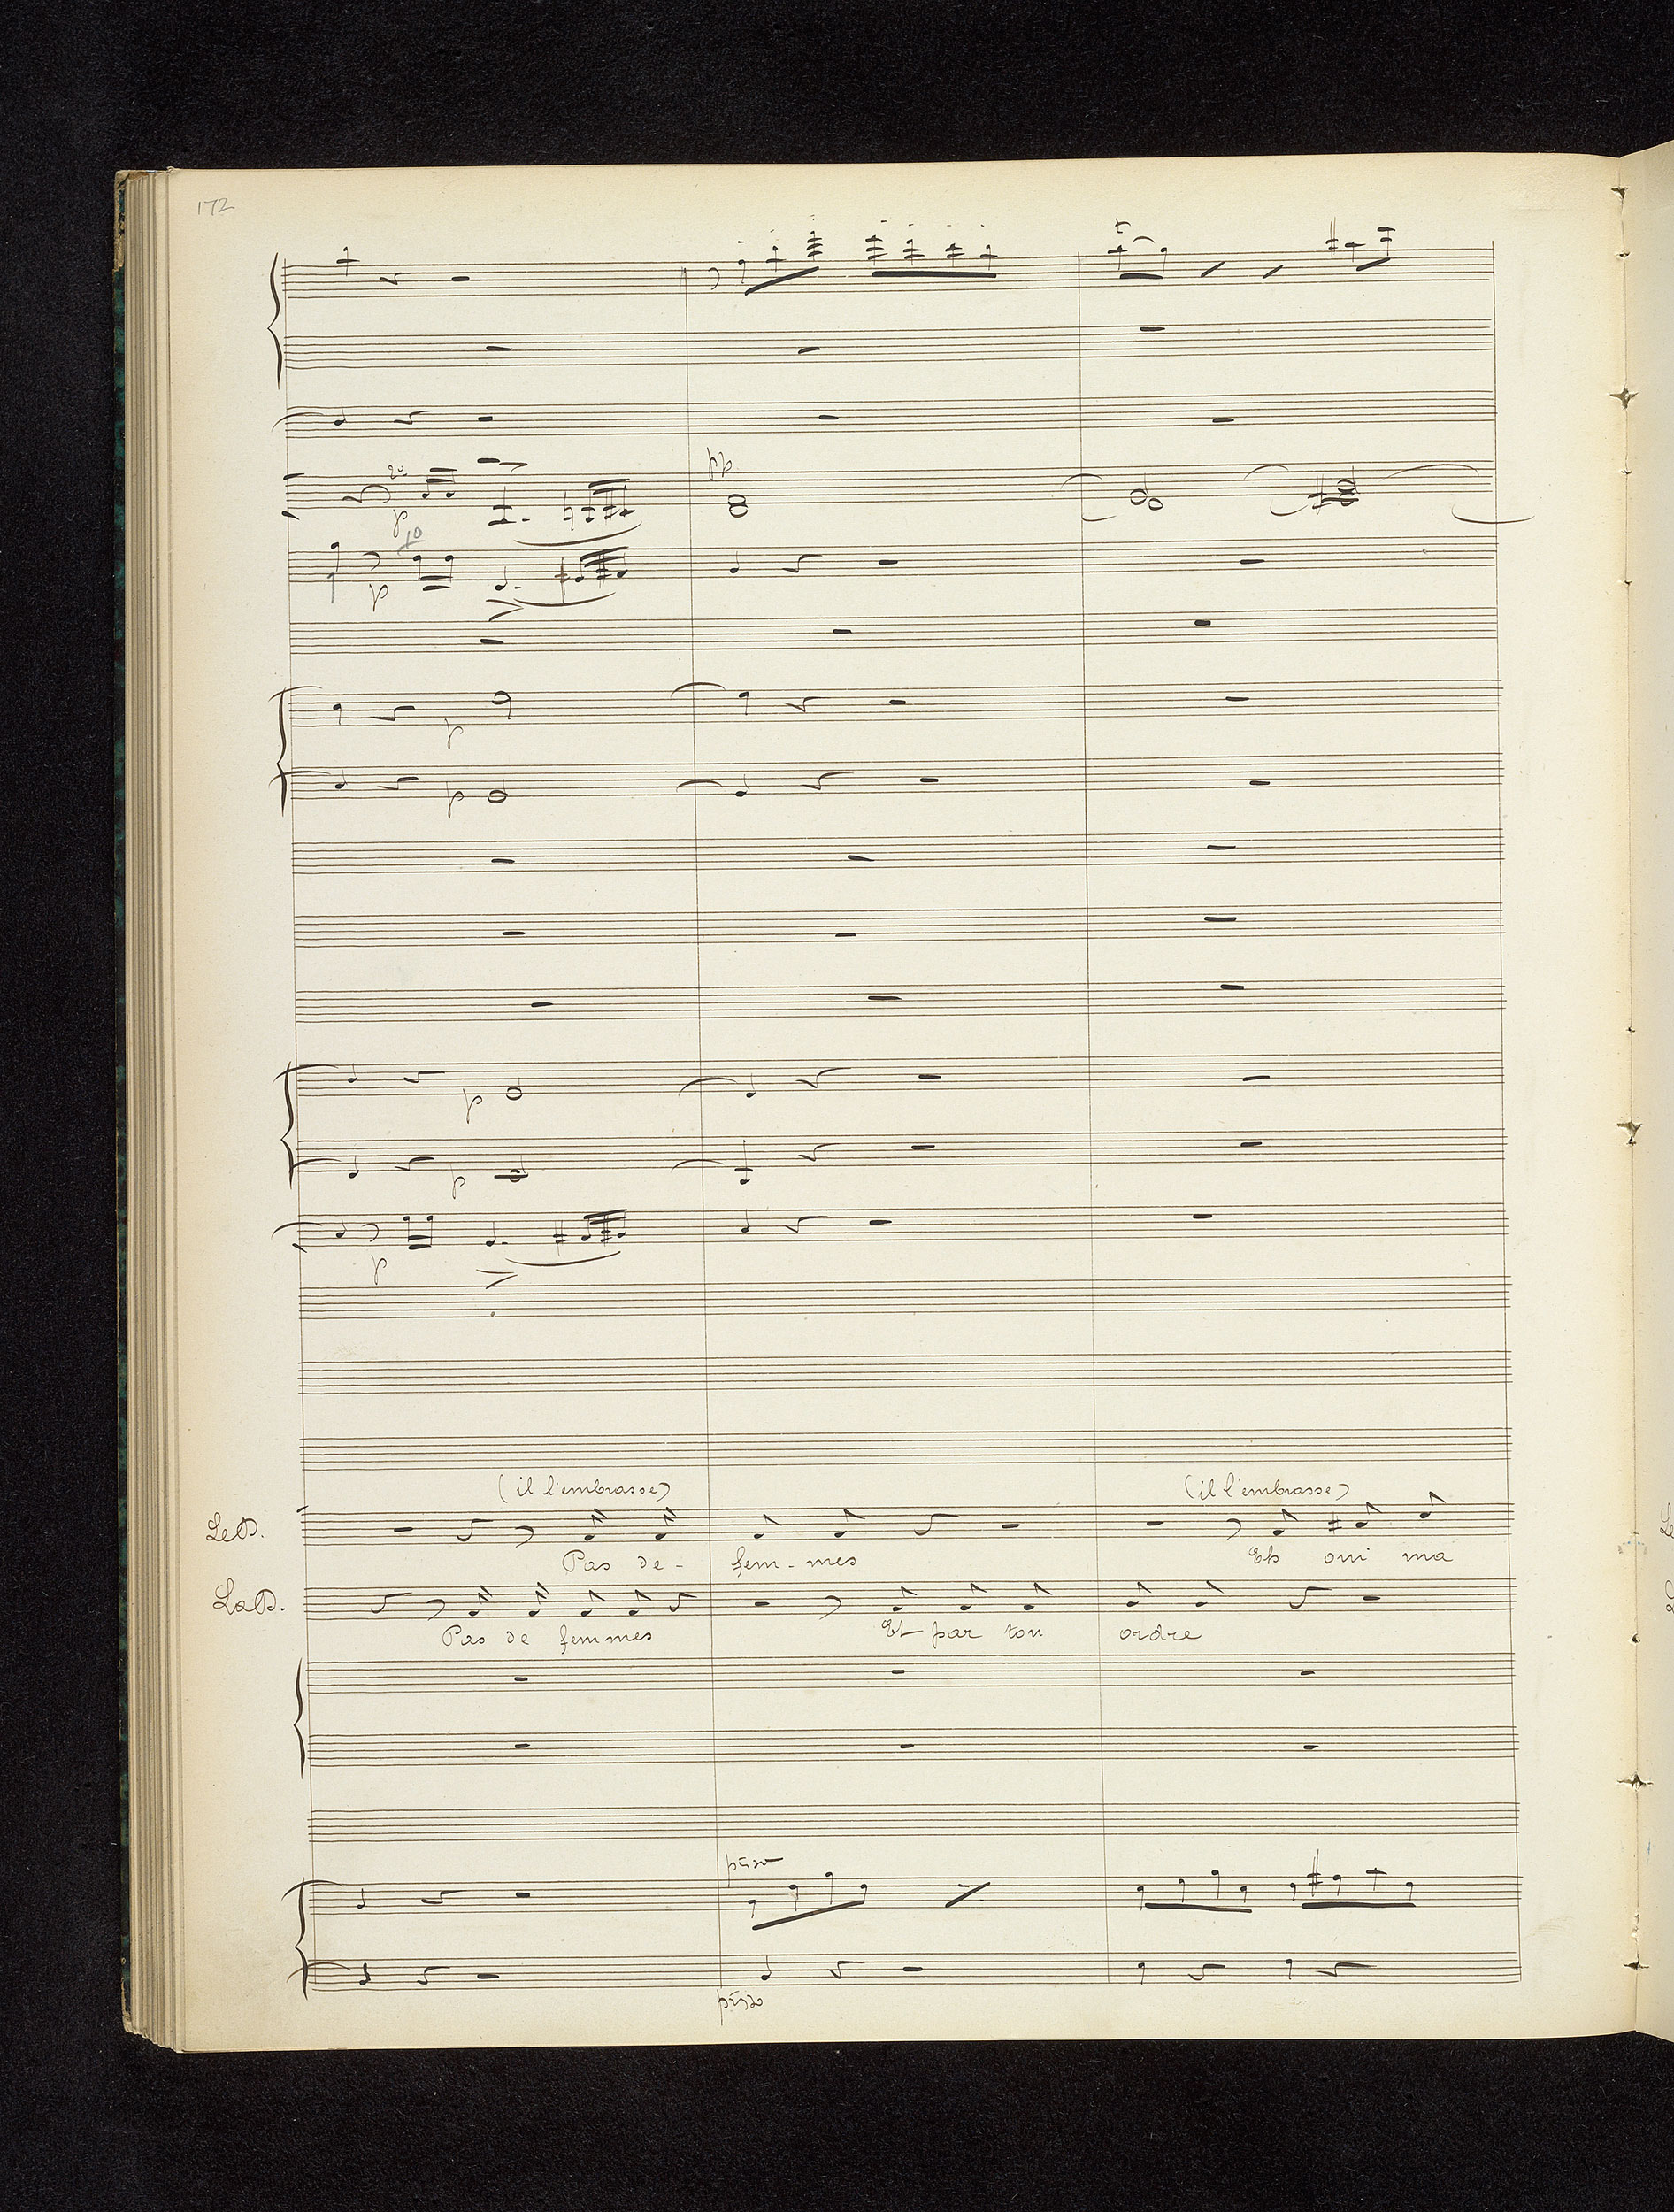 172
2º
p
pp
1º
p
p
p
p
p
p
(il l'embrasse) (il l'embrasse)
Le D.
Pas de - fem - mes Eh oui ma
La D.
Pas de femmes Et par ton ordre